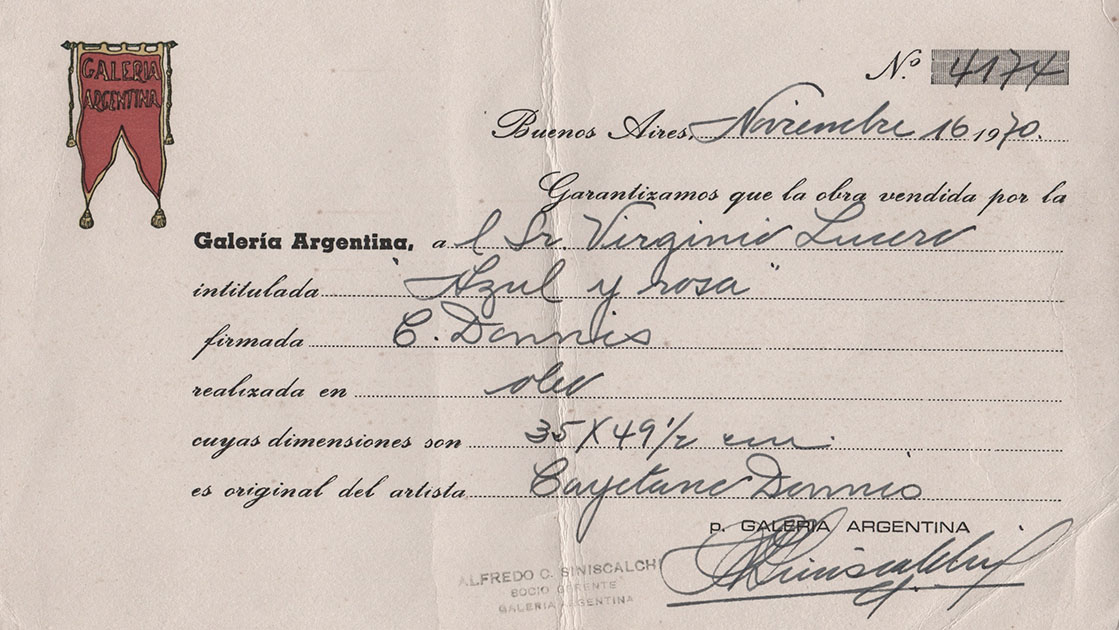 GALERIA
ARGENTINA
Nº 4174
Buenos Aires, Noviembre 16 1970.
Garantizamos que la obra vendida por la
Galería Argentina, a l Sr. Virginio Lucero
intitulada "Azul y rosa"
firmada C. Donnis
realizada en oleo
cuyas dimensiones son 35 X 49 1/2 cm.
es original del artista Cayetano Donnis
p. GALERIA ARGENTINA
ASiniscalchi
ALFREDO C. SINISCALCHI
SOCIO GERENTE
GALERIA ARGENTINA